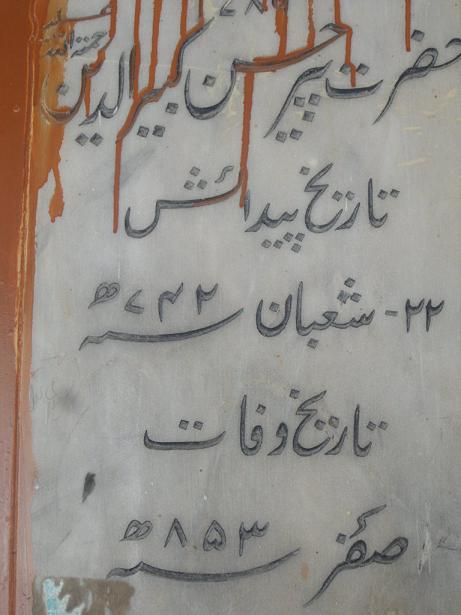 ۷۸۶
حضرت پیر حسن کبیر الدین رحمۃ اللہ علیہ
تاریخ پیدائش
۲۲- شعبان سنہ ۷۴۲ھ
تاریخ وفات
صفر سنہ ۸۵۳ھ